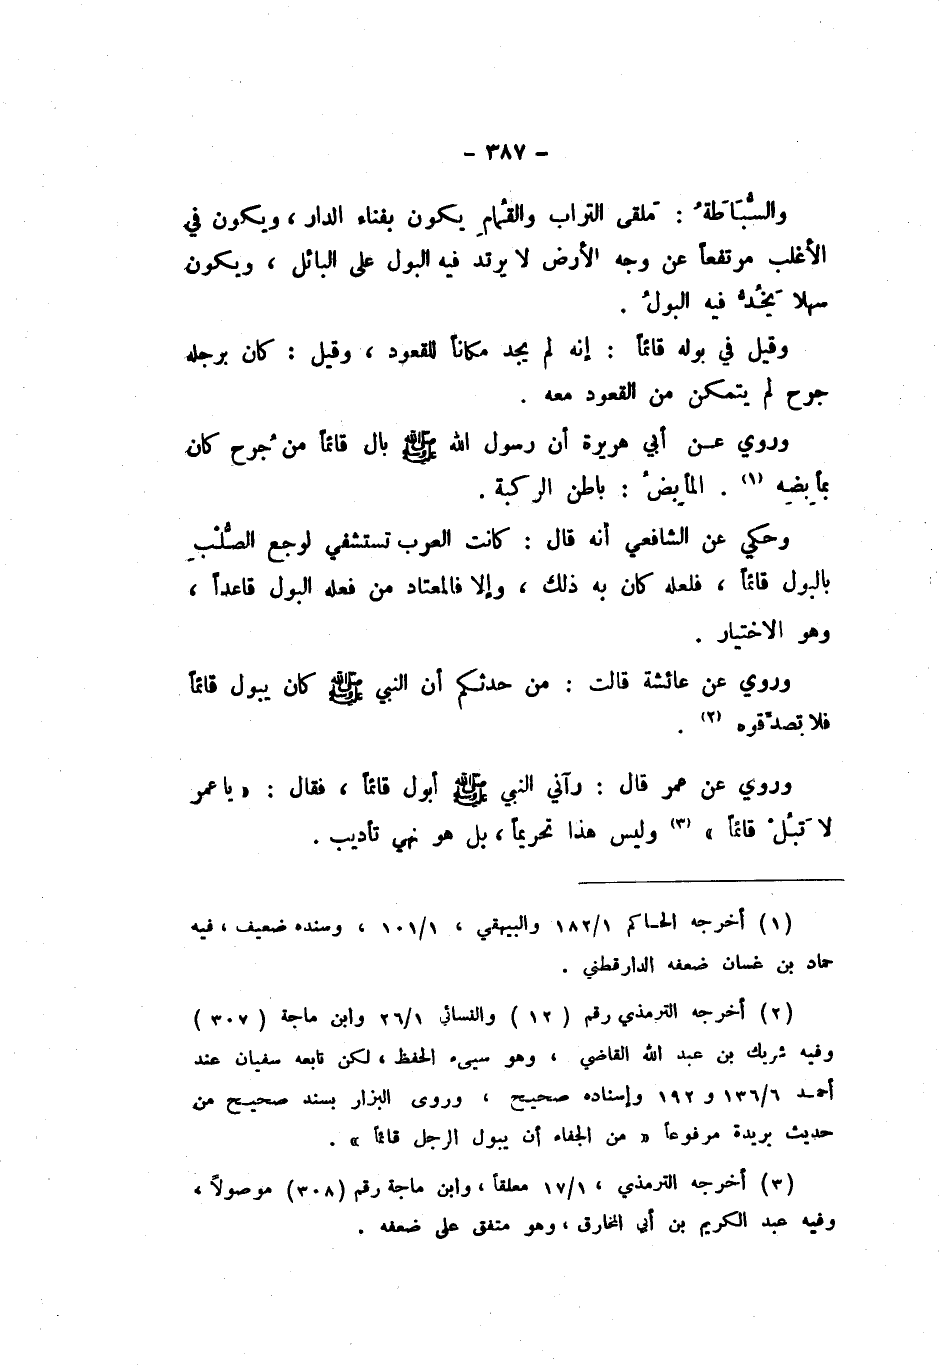 - ٣٨٧ -
والسُّبَاطَةُ : مَلقى التراب والقُمامِ يكون بفناء الدار ، ويكون في
الأغلب مرتفعاً عن وجه الأرض لا يرتد فيه البول على البائل ، ويكون
سهلا يَخُدُّ فيه البولُ .
وقيل في بوله قائماً : إنه لم يجد مكاناً للقعود ، وقيل : كان برجله
جرح لم يتمكن من القعود معه .
وروي عـن أبي هريرة أن رسول الله ﷺ بال قائماً من جُرح كان
بمأبِضِه (١) . المأبِضُ : باطن الركبة .
وحكي عن الشافعي أنه قال : كانت العرب تستشفي لوجع الصُّلْبِ
بالبول قائماً ، فلعله كان به ذلك ، وإلا فالمعتاد من فعله البول قاعداً ،
وهو الاختيار .
وروي عن عائشة قالت : من حدثكم أن النبي ﷺ كان يبول قائماً
فلا تصدِّقوه (٢) .
وروي عن عمر قال : رآني النبي ﷺ أبول قائماً ، فقال : « يا عمر
لا تَبُلْ قائماً » (٣) وليس هذا تحريماً ، بل هو نهي تأديب .
(١) أخرجه الحـاكم ١٨٢/١ والبيهقي ، ١٠١/١ ، وسنده ضعيف ، فيه
حماد بن غسان ضعفه الدارقطني .
(٢) أخرجه الترمذي رقم ( ١٢ ) والنسائي ٢٦/١ وابن ماجة ( ٣٠٧ )
وفيه شريك بن عبد الله القاضي ، وهو سيىء الحفظ ، لكن تابعه سفيان عند
أحمـد ١٣٦/٦ و ١٩٢ وإسناده صحيح ، وروى البزار بسند صحيح من
حديث بريدة مرفوعاً « من الجفاء أن يبول الرجل قائماً » .
(٣) أخرجه الترمذي ، ١٧/١ معلقاً ، وابن ماجة رقم (٣٠٨) موصولاً ،
وفيه عبد الكريم بن أبي المخارق ، وهو متفق على ضعفه .